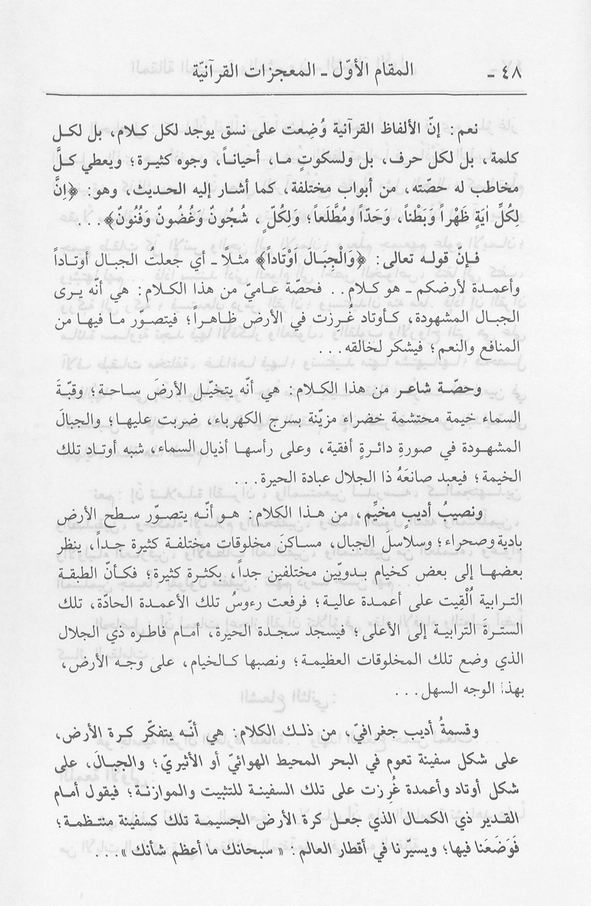 ٤٨ - المقام الأوّل - المعجزات القرآنيّة
نعم: إنّ الألفاظ القرآنية وُضعت على نسق يوجد لكل كلام، بل لكل
كلمة، بل لكل حرف، بل ولسكوتٍ ما، أحياناً، وجوه كثيرة؛ ويعطي كلَّ
مخاطب له حصّته، من أبواب مختلفة، كما أشار إليه الحديث، وهو: ﴿إِنَّ
لِكُلِّ اٰيَةٍ ظَهْراً وَبَطْناً، وَحَدّاً وَمُطَّلَعاً؛ وَلِكُلٍّ، شُجُونٌ وَغُضُونٌ وَفُنُونٌ﴾...
فـإنّ قولـه تعالى: ﴿وَالْجِبَـالَ اَوْتَاداً﴾ مثـلاً - أي جعلتُ الجبـال أوتاداً
وأعمـدة لأرضكـم - هو كـلام.. فحصّـة عـاميّ من هـذا الكلام: هي أنّه يـرى
الجبـال المشهودة، كـأوتاد غُـرزت في الأرض ظاهـراً؛ فيتصـوّر ما فيهـا من
المنافع والنعم؛ فيشكر لخالقه...
وحصّـة شاعـر من هذا الكلام: هي أنّه يتخيّـل الأرضَ ساحـة؛ وقبّـةَ
السماء خيمة محتشمة خضراء مزيّنة بسرج الكهرباء، ضربت عليهـا؛ والجبالَ
المشهـودة في صورةِ دائـرةٍ أفقية، وعلى رأسهـا أذيال السماء، شبه أوتـاد تلك
الخيمة؛ فيعبد صانعَهُ ذا الجلال عبادة الحيرة...
ونصيبُ أديب مخيِّم، من هـذا الكلام: هـو أنّـه يتصـوّر سطـح الأرض
بادية وصحراء؛ وسلاسلَ الجبال، مساكـنَ مخلوقات مختلفـة كثيرة جـداً، ينظر
بعضهـا إلى بعض كخيام بـدويّين مختلفين جداً، بكثـرة كثيرة؛ فكـأنّ الطبقـة
الترابية أُلقِيت على أعمـدة عالية؛ فرفعت رءوسُ تلك الأعمدة الحادّة، تلك
السترةَ الترابية إلى الأعلى؛ فيسجد سجـدة الحيرة، أمـام فاطـره ذي الجلال
الذي وضع تلك المخلوقات العظيمة؛ ونصبها كالخيام، على وجـه الأرض،
بهذا الوجه السهل...
وقسمةُ أديب جغرافيّ، من ذلـك الكلام: هي أنّـه يتفكّر كـرة الأرض،
على شكل سفينة تعوم في البحر المحيط الهوائيّ أو الأثيريّ؛ والجبـالَ، على
شكل أوتاد وأعمدة غُرزت على تلك السفينـة للتثبيت والموازنـة؛ فيقول أمـام
القـدير ذي الكمال الذي جعـل كرة الأرض الجسيمة تلك كسفينة منتظـمة؛
فَوَضَعَنا فيها؛ ويسيّرنا في أقطار العالم: «سبحانك ما أعظم شأنك»...